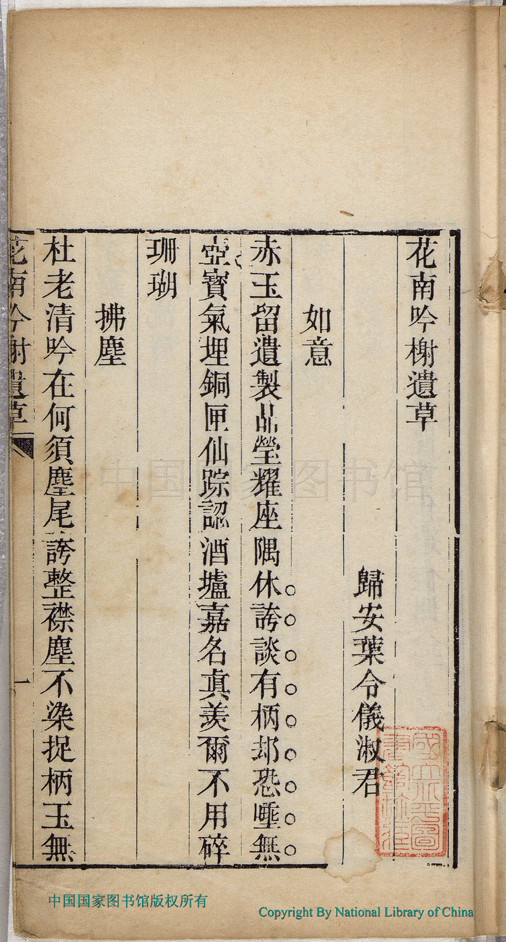 花南吟榭遺草
歸安葉令儀淑君
如意
赤玉留遺製品瑩耀座隅休誇談有柄却恐唾無
壺寶氣埋銅匣仙踪認酒壚嘉名真羨爾不用碎
珊瑚
拂塵
杜老清吟在何須麈尾誇整襟塵不染捉柄玉無
花南吟榭遺草
一
中国国家图书馆
中国国家图书馆版权所有
Copyright By National Library of China